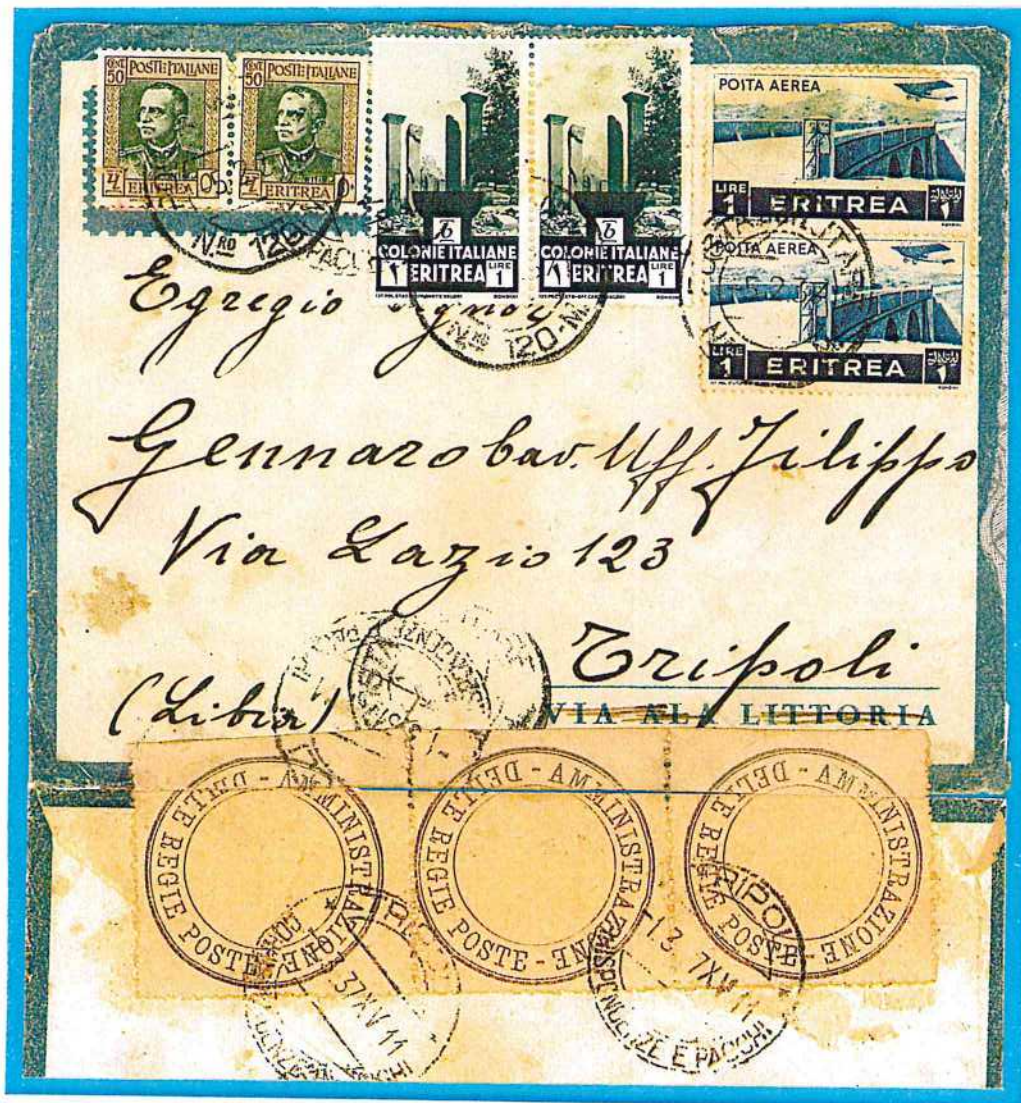 CENT 50 POSTE ITALIANE ERITREA
CENT 50 POSTE ITALIANE ERITREA
COLONIE ITALIANE
ERITREA LIRE 1
COLONIE ITALIANE
ERITREA LIRE 1
POSTA AEREA
LIRE 1 ERITREA
POSTA AEREA
LIRE 1 ERITREA
NRO 120
NRO 120
Egregio Signor
Gennaro Cav. Uff. Filippo
Via Lazio 123
Tripoli
(Libia)
VIA ALA LITTORIA
AMMINISTRAZIONE DELLE REGIE POSTE
AMMINISTRAZIONE - DELLE REGIE POSTE
AMMINISTRAZIONE - DELLE REGIE POSTE
37XV 11
TRIPOLI
-1.3 7XV 11
CORRISPONDENZE E PACCHI